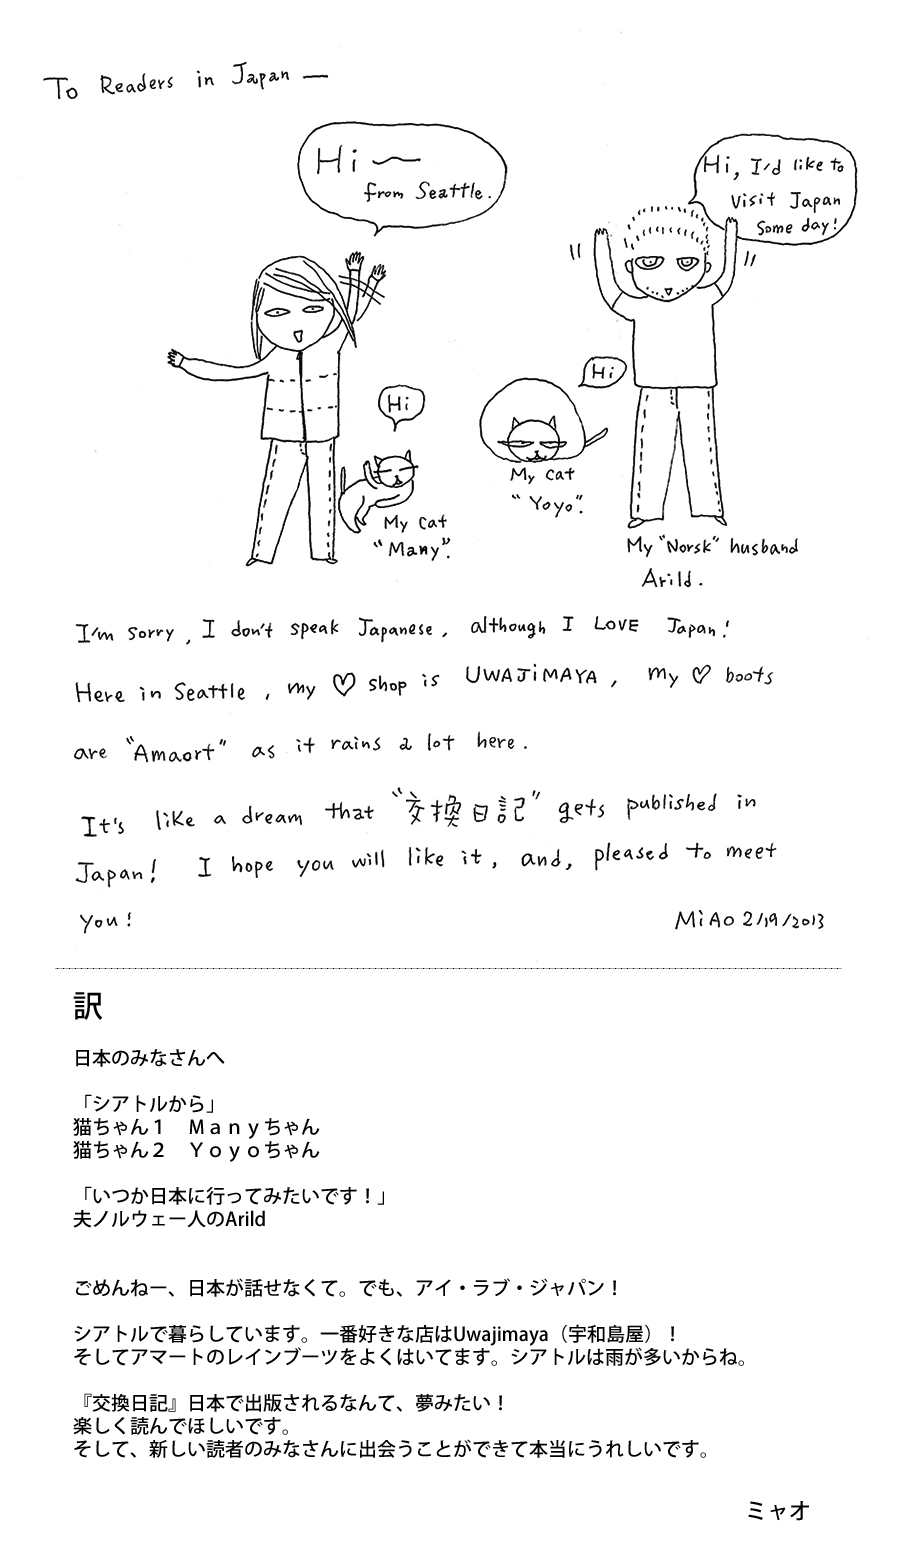 To Readers in Japan —
Hi 〜
from Seattle.
Hi, I'd like to
visit Japan
some day!
Hi
Hi
My cat
"Many".
My cat
"Yoyo".
My "Norsk" husband
Arild.
I'm sorry, I don't speak Japanese, although I LOVE Japan!
Here in Seattle, my ♡ shop is UWAJiMAYA, my ♡ boots
are "Amaort" as it rains a lot here.
It's like a dream that "交換日記" gets published in
Japan! I hope you will like it, and, pleased to meet
you!
MiAO 2/19/2013
訳
日本のみなさんへ
「シアトルから」
猫ちゃん１　Ｍａｎｙちゃん
猫ちゃん２　Ｙｏｙｏちゃん
「いつか日本に行ってみたいです！」
夫ノルウェー人のArild
ごめんねー、日本が話せなくて。でも、アイ・ラブ・ジャパン！
シアトルで暮らしています。一番好きな店はUwajimaya（宇和島屋）！
そしてアマートのレインブーツをよくはいてます。シアトルは雨が多いからね。
『交換日記』日本で出版されるなんて、夢みたい！
楽しく読んでほしいです。
そして、新しい読者のみなさんに出会うことができて本当にうれしいです。
ミャオ